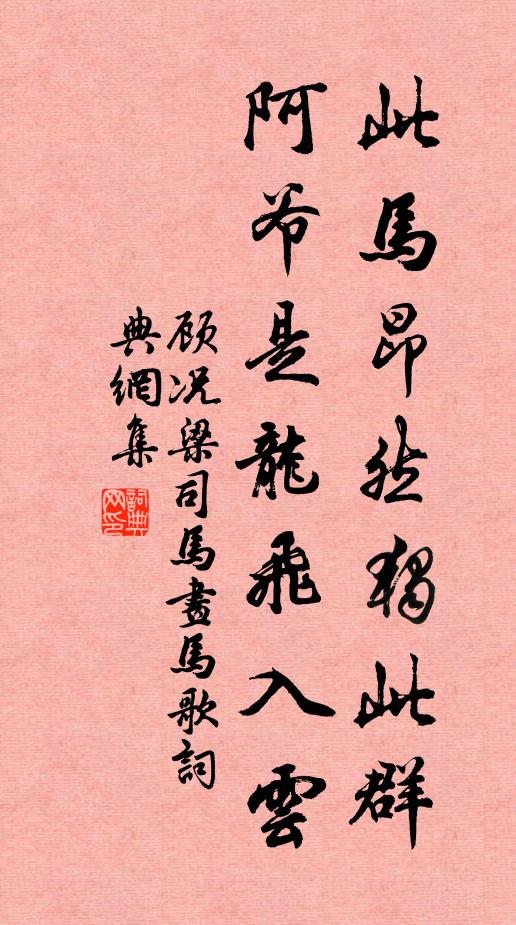 此馬昂然獨此群
阿爷是龍飛入雲
顾况梁司馬畫馬歌詞
典網集
詞典
网印